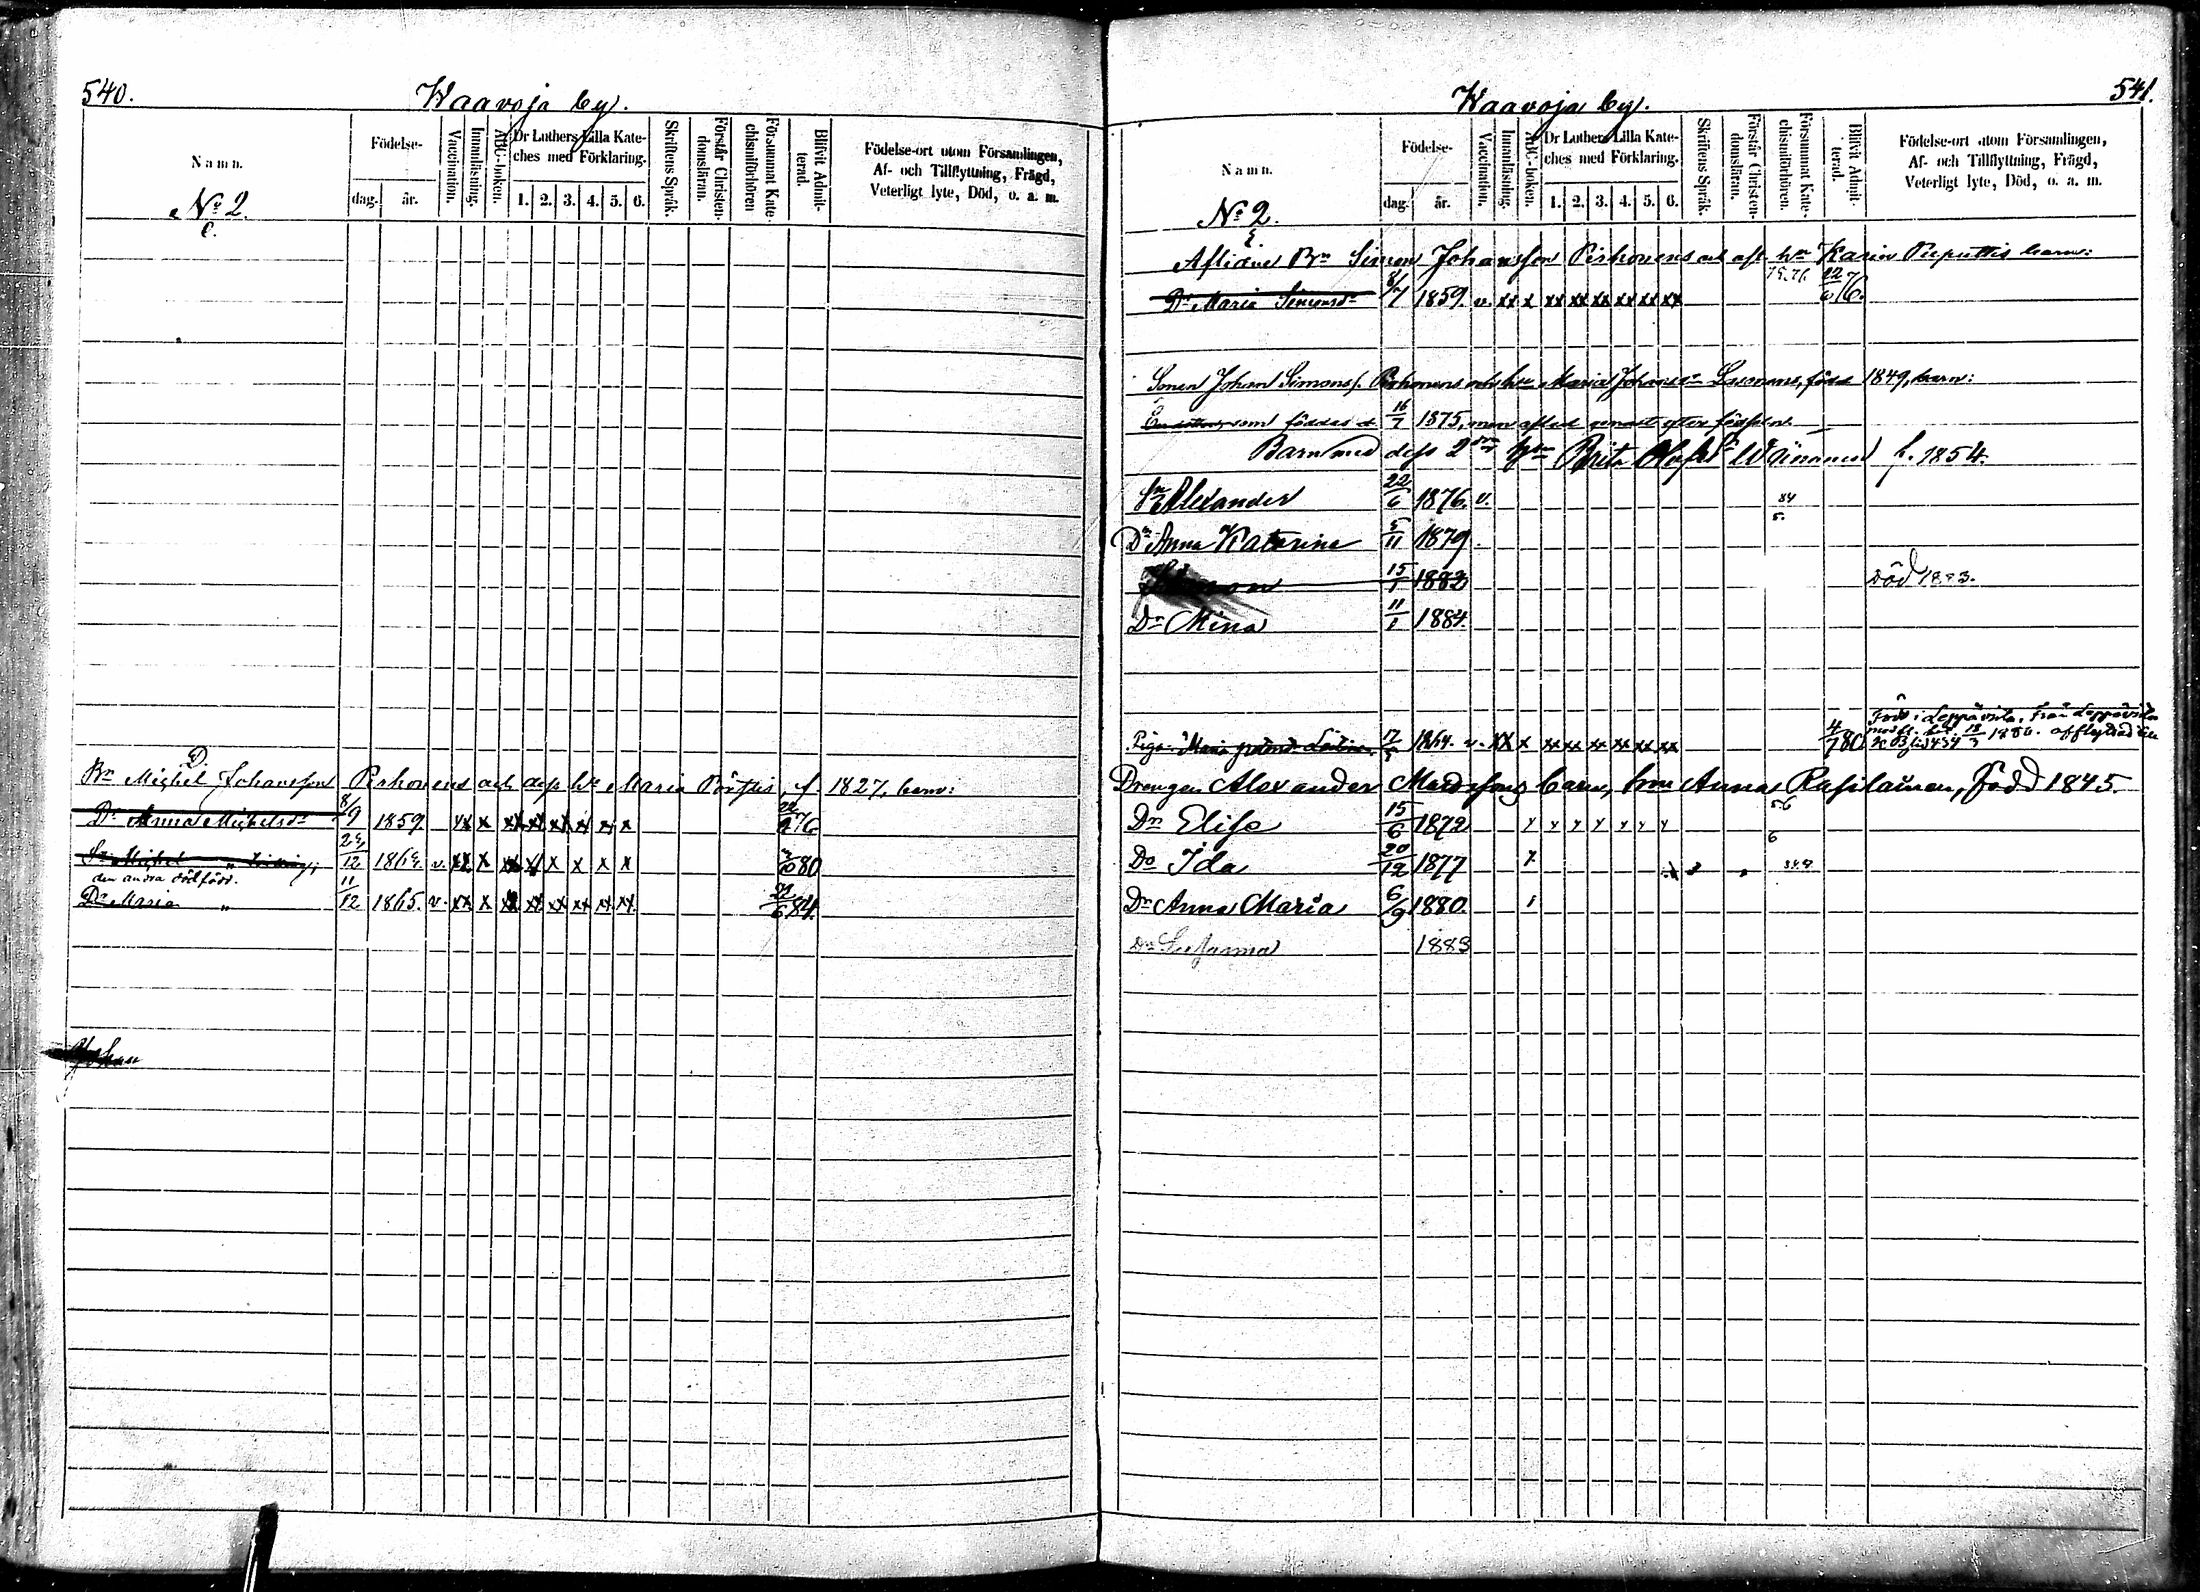 540.
Waavoja by.
Namn.
Födelse-
dag.
år.
Vaccination.
Innanläsning.
ABC-boken.
Dr Luthers Lilla Kate-
ches med Förklaring.
1. 2. 3. 4. 5. 6.
Skriftens Språk.
Förstår Christen-
domsläran.
Försummat Kate-
chismiförhören
Blifvit Admit-
terad.
Födelse-ort utom Församlingen,
Af- och Tillflyttning, Frägd,
Veterligt lyte, Död, o. a. m.
No 2.
C.
D.
Bn Michel Johansson Pirhonens och dess h:u Maria f. 1827, barn:
Dr Anna Michelsdr 8/9 1859 xx x xx xx xx x x x 76
Sn Michel " 12 1864 v. xx x xx x x x x x 80
den andra dödfödd.
Dr Maria " 11/12 1865. v. xx x xx xx xx xx xx xx 84.
Johan
541.
Waavoja by.
Namn.
Födelse-
dag.
år.
Vaccination.
Innanläsning.
ABC-boken.
Dr Luthers Lilla Kate-
ches med Förklaring.
1. 2. 3. 4. 5. 6.
Skriftens Språk.
Förstår Christen-
domsläran.
Försummat Kate-
chismiförhören.
Blifvit Admit-
terad.
Födelse-ort utom Församlingen,
Af- och Tillflyttning, Frägd,
Veterligt lyte, Död, o. a. m.
No 2.
E.
Aflidne Bn Simon Johansson Pirhonens och afl. h:u Karin Pieputtis barn:
Dr Maria Simonsdr 8/7 1859. v. xx x xx xx xx xx xx xx 22/6 76.
Sonen Johan Simonss. Pirhonens och h:u Maria Johansdr född 1849, barn:
som föddes d. 16/7 1875, men afled genast efter födseln.
Barn med dess 2dra h:u Brita Olofsdr Väinänen f. 1854.
Sn Alexander 22/6 1876. v. 84
5.
Dr Anna Katarina 5/11 1879.
Simon 15/1 1882 Död 1883.
Dr Mina 11/1 1884.
Pigan Maria 17 1864. v. xx x xx xx xx xx xx xx 4/7 80
Född i Leppävirta. Från Leppävirta
1880. afflyttad till
Drengen Alexander barn, h:u Anna Rasilainen, född 1845.
Dr Elise 15/6 1872 56
6
Dr Ida 20/12 1877
Dr Anna Maria 6/9 1880.
Dr Susanna 1883